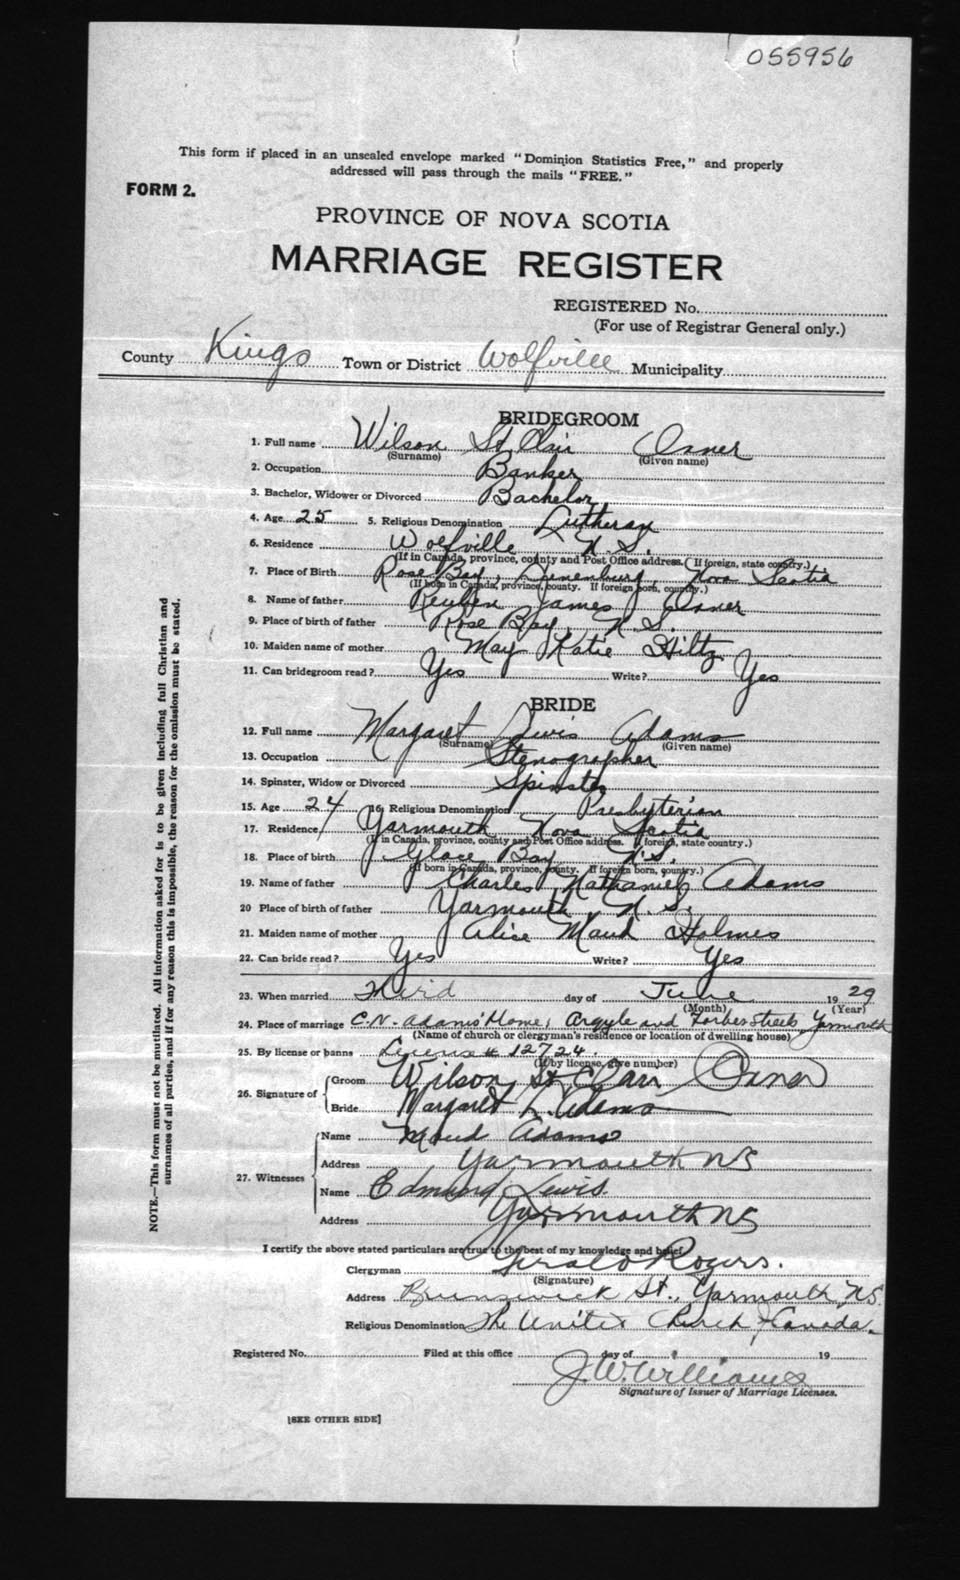 055956
This form if placed in an unsealed envelope marked "Dominion Statistics Free," and properly
addressed will pass through the mails "FREE."
FORM 2.
PROVINCE OF NOVA SCOTIA
MARRIAGE REGISTER
REGISTERED No.
(For use of Registrar General only.)
County Kings Town or District Wolfville Municipality
BRIDEGROOM
1. Full name Wilson St. Clair
(Surname) (Given name)
2. Occupation Banker
3. Bachelor, Widower or Divorced Bachelor
4. Age 25 5. Religious Denomination Lutheran
6. Residence Wolfville N.S.
(If in Canada, province, county and Post Office address. If foreign, state country.)
7. Place of Birth Rose Bay, Lunenburg, Nova Scotia
(If born in Canada, province, county. If foreign born, country.)
8. Name of father Reuben James
9. Place of birth of father Rose Bay, N.S.
10. Maiden name of mother May Katie Hiltz
11. Can bridegroom read? Yes Write? Yes
BRIDE
12. Full name Margaret Lewis Adams
(Surname) (Given name)
13. Occupation Stenographer
14. Spinster, Widow or Divorced Spinster
15. Age 24 16. Religious Denomination Presbyterian
17. Residence Yarmouth Nova Scotia
(If in Canada, province, county and Post Office address. If foreign, state country.)
18. Place of birth Glace Bay N.S.
(If born in Canada, province, county. If foreign born, country.)
19. Name of father Charles Nathaniel Adams
20 Place of birth of father Yarmouth N.S.
21. Maiden name of mother Alice Maud Holmes
22. Can bride read? Yes Write? Yes
23. When married Third day of June 19 29
(Month) (Year)
24. Place of marriage C.N. Adams' Home, Argyle and Forbes Streets Yarmouth
(Name of church or clergyman's residence or location of dwelling house)
25. By license or banns License # 12724.
(If by license, give number)
26. Signature of
Groom Wilson St. Clair
Bride Margaret L. Adams
27. Witnesses
Name Maud Adams
Address Yarmouth NS
Name Edmund Lewis.
Address Yarmouth NS
I certify the above stated particulars are true to the best of my knowledge and belief
Clergyman Gerald Rogers.
(Signature)
Address Brunswick St., Yarmouth, N.S.
Religious Denomination The United Church of Canada.
Registered No. Filed at this office day of 19
J.W. Williams
Signature of Issuer of Marriage Licenses.
[SEE OTHER SIDE]
NOTE.—This form must not be mutilated. All information asked for is to be given including full Christian and
surnames of all parties, and if for any reason this is impossible, the reason for the omission must be stated.